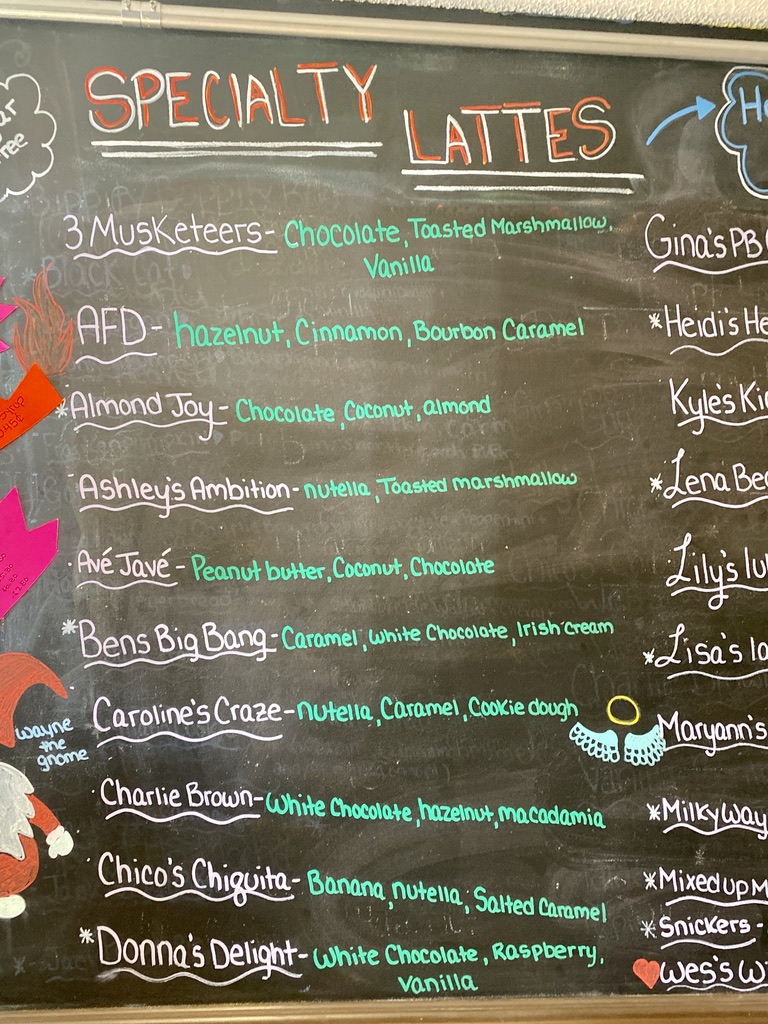 SPECIALTY
LATTES
3 Musketeers- Chocolate, Toasted Marshmallow,
Vanilla
AFD- hazelnut, Cinnamon, Bourbon Caramel
*Almond Joy- Chocolate, Coconut, almond
Ashley's Ambition- nutella, Toasted marshmallow
Avé Javé- Peanut butter, Coconut, Chocolate
*Bens Big Bang- Caramel, White Chocolate, Irish cream
Caroline's Craze- nutella, Caramel, Cookie dough
Charlie Brown- White Chocolate, hazelnut, macadamia
Chico's Chiquita- Banana, nutella, Salted Caramel
*Donna's Delight- White Chocolate, Raspberry,
Vanilla
wayne
the
gnome
Gina's PB
*Heidi's He
Kyle's Ki
*Lena Bee
Lily's lu
*Lisa's la
Maryann's
*Milkyway
*Mixed up M
*Snickers -
Wes's W